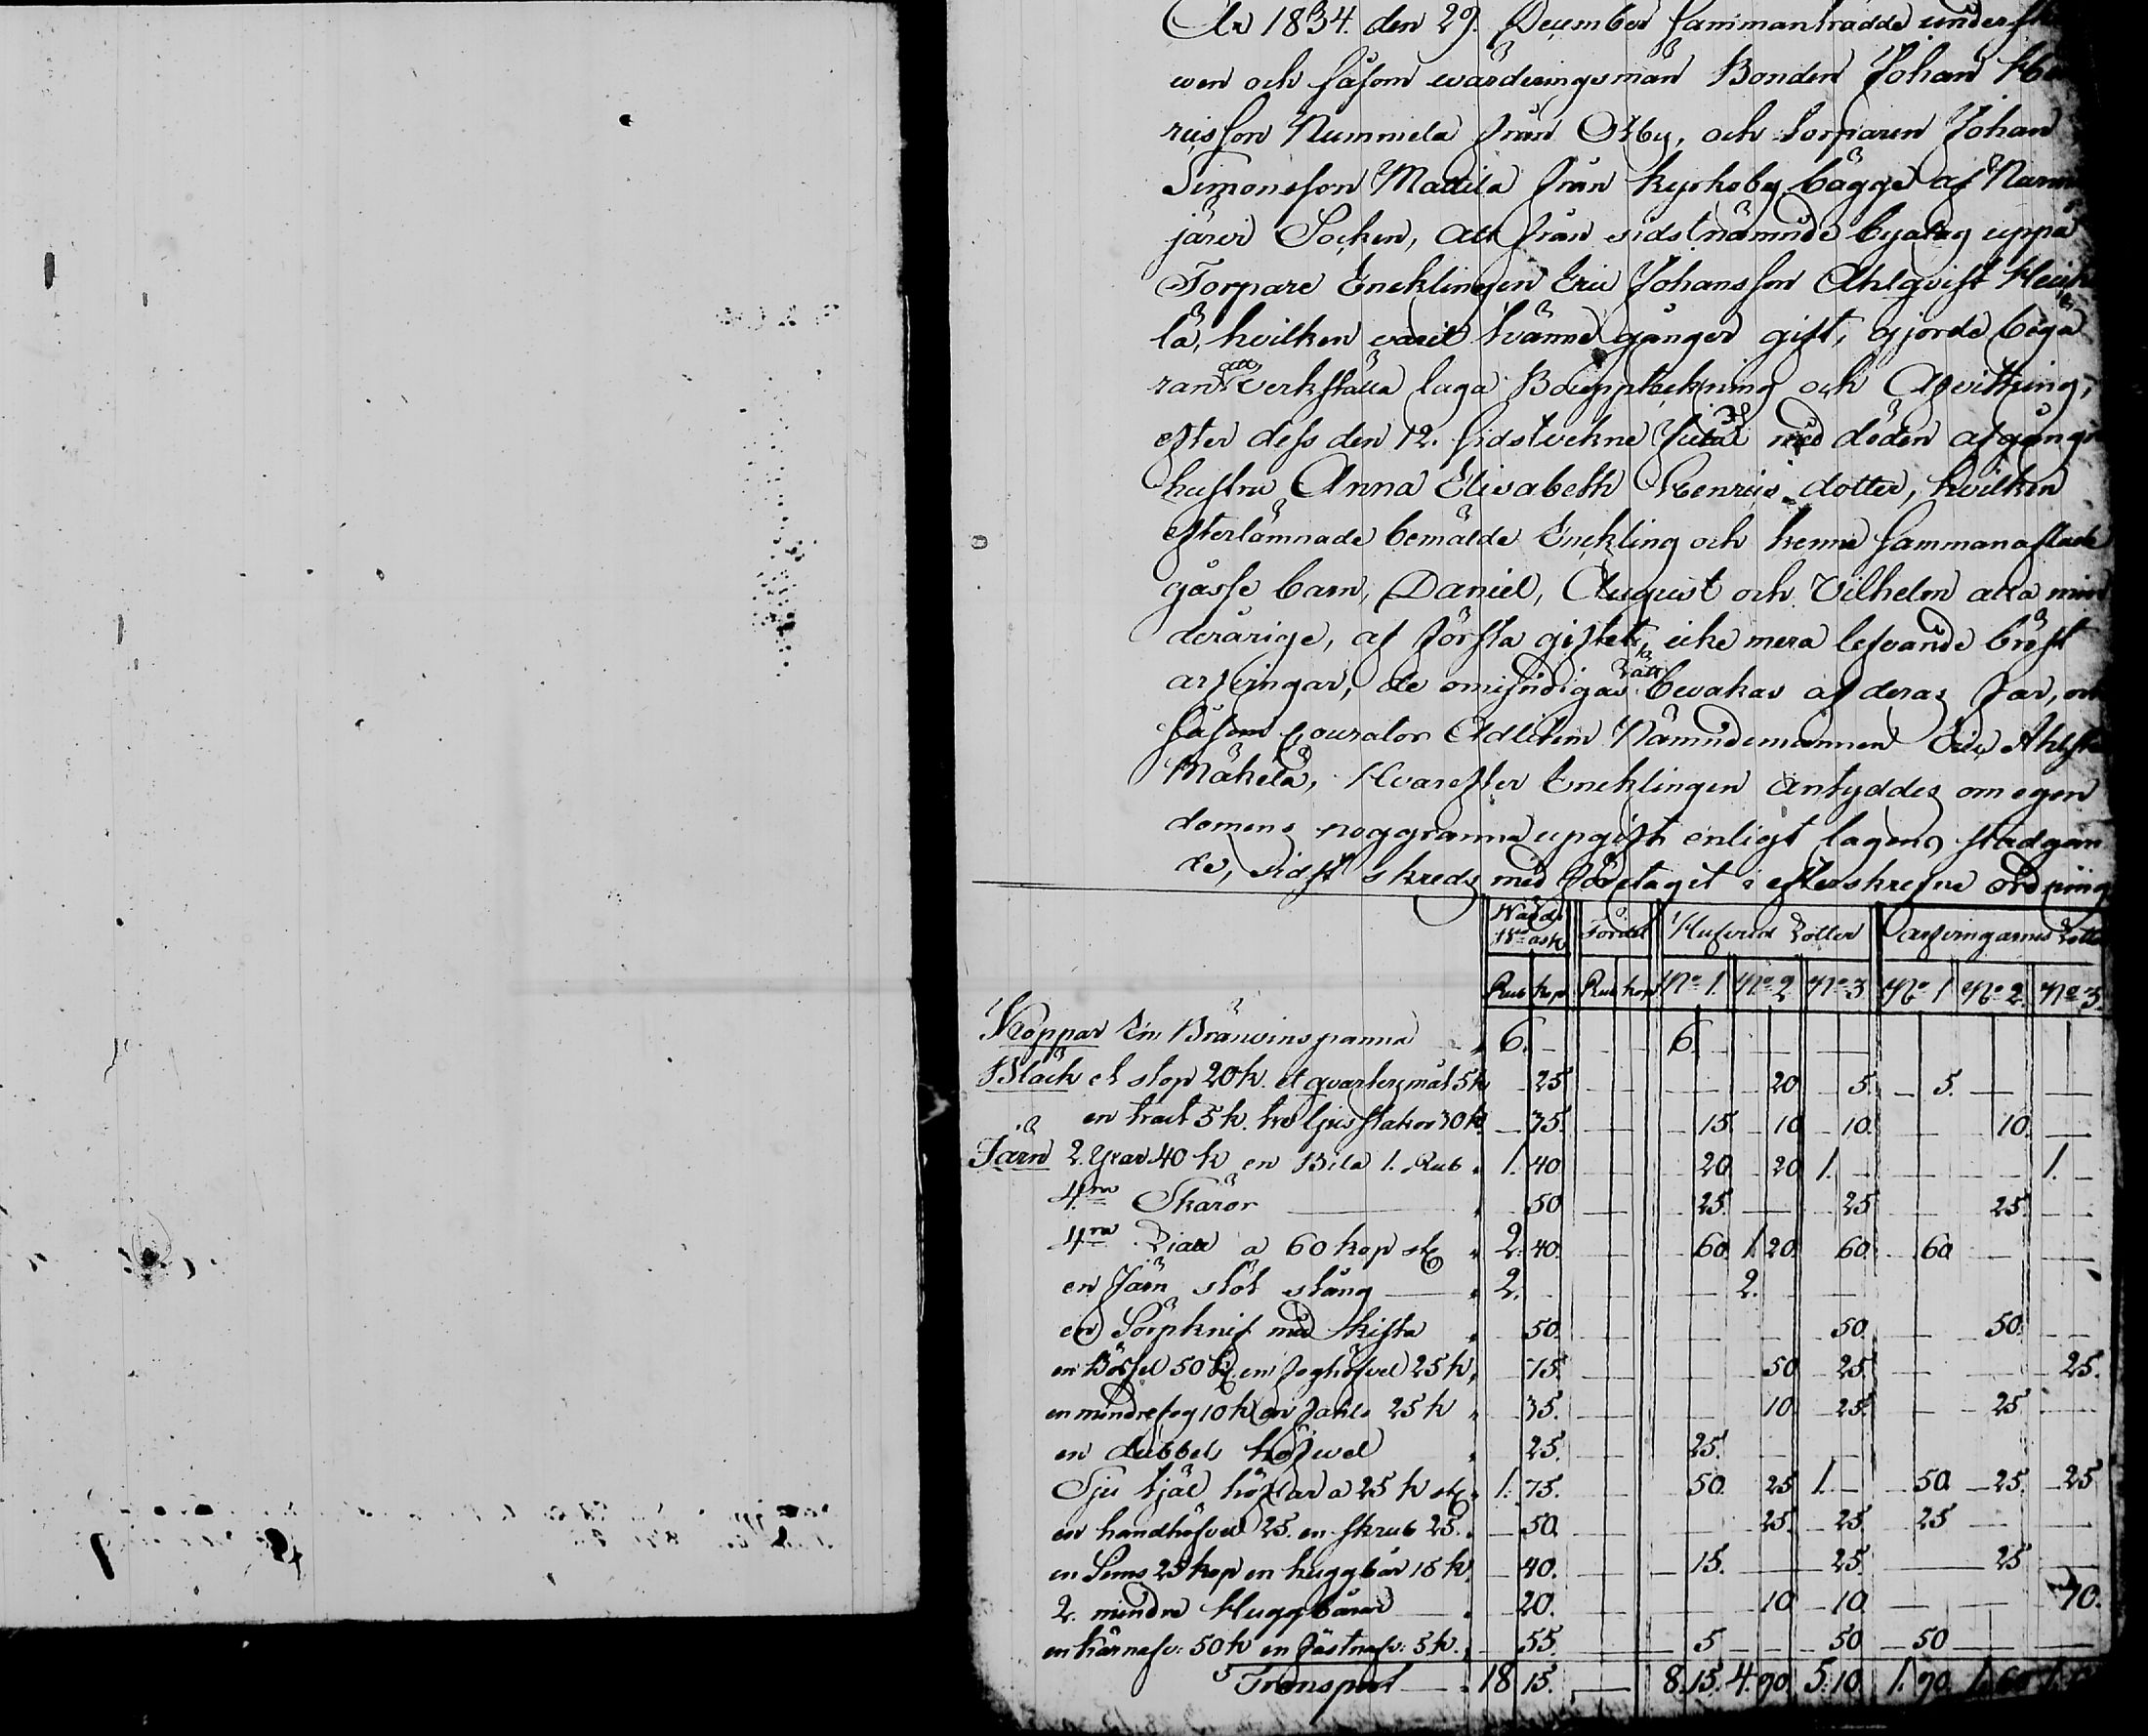 År 1834. den 29. December sammanträdde underskre
wen och såsom wärderingsmän Bonden Johan Hen
ricsson Nummela från Öfby, och torparen Johan
Simonsson Mattila från kyrkoby bägge af Närm
järvi Socken, att från sidstnämnde byalag uppå
Torpare Encklingen Eric Johansson Ahlqvist Heick
lä, hvilken varit tvänne gånger gift, gjorde begä
ran att verkställa laga Bouppteckning och Afvittring,
efter dess den 12. sidstvekne Julii med döden afgångn
hustru Anna Elisabeth Henrics dotter, hvilken
efterlämnade bemälde Enckling och henne sammanaflade
gåsse barn, Daniel, August och Vilhelm alla min
derårige, af första giftet, icke mera lefvande bröst
arfvingar, de omyndigas rätt bevakas af deras far, och
såsom Courator Adlitem Nämndemannen Eric Ahls
Mäkelä, Hvarefter Encklingen antyddes om egen
domens noggranna upgift enligt lagens stadgan
de, sidst skreds med företaget i efterskrefne ordning
Värde Rub ask Fördel Husfrud Lotter Arfvingarnes Lotte
Rub kop Rub kop No 1. No 2 No 3 No 1 No 2. No 3.
Koppar En Bränvinspanna 6. — 6.
Bläck et stop 20 k. et qvartersmåt 5 k 25 20 5. 5.
en tratt 5 k. tre ljusstakar 30 k 35. 15. 10 10. 10.
Järn 2. Yxar 40 k en Bila 1. Rub 1. 40 20 20 1. 1.
4ra Skäror 50 25. 25 25.
4ra Liar a 60 kop st 2. 40. 60. 1. 20. 60. 60
en Järn stöt stång 2. 2.
en Sörpknif med kista 50. 50. 50.
en 50 k. en foghöfvel 25 k. 75. 50 25. 25.
en mindre fog 10 k en 25 k 35. 10. 25. 25
en dubbel höfwel 25. 25.
Sju höflar a 25 k st 1. 75. 50. 25 1. 50. 25. 25
en handhöfvel 25. en skrub 25. 50. 25. 25 25
en Sems 25 kop en huggbår 15 k 40. 15. 25. 25
2. mindre Huggbårar 20. 10 10. 10.
en Kärnafv: 50 k en Fästnafv: 5 k. 55. 5 50 50
Transport 18 15. 8. 15. 4. 90 5. 10 1. 90 1. 60